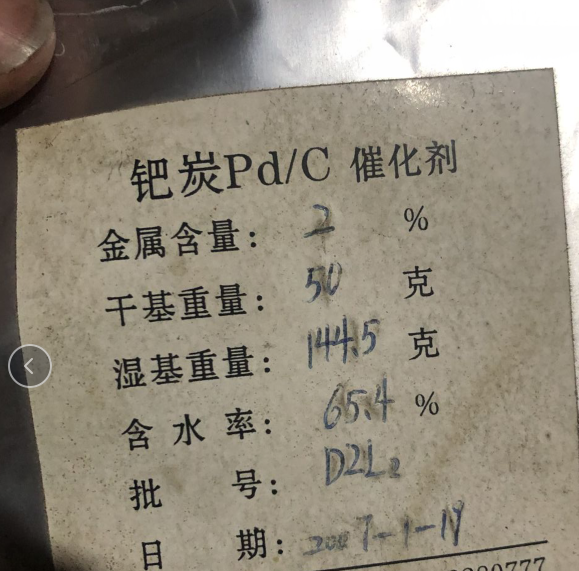 钯炭Pd/C 催化剂
金属含量: 2 %
干基重量: 50 克
湿基重量: 144.5 克
含水率: 65.4 %
批号: D2L2
日期: